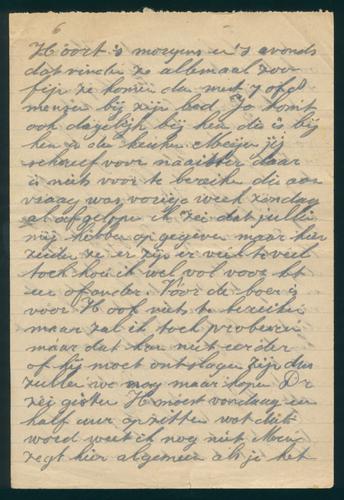 6
H óórt is morgens en 's avonds
dat vinden ze allemaal zoo
fijn ze komen dan met 7 of 8
menschen bij zijn bed Jo komt
ook dagelijks bij hem die is bij
hem in de keuken Meisje jij
schreef voor naaister daar
is niets voor te bereiken die aan
vraag was vorige week Zondag
al afgelopen ik zei dat jullie
mij hebben op gegeven maar hier
zeiden ze er zijn er veel te veel
toch hou ik wel vol voor het
een of ander. Voor de boer is
voor H ook niets te bereiken
maar zal ik toch probeeren
maar dat kan niet eerder
of hij moet ontslagen zijn dus
zullen we nog maar hopen Dr
zei gister H moest vandaag een
half uur op zitten wat dit
word weet ik nog niet Men
zegt hier algemeen als je het